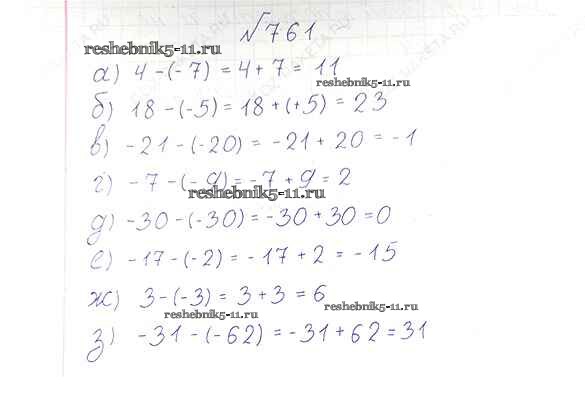 №761
reshebnik5-11.ru
а) 4 - (-7) = 4 + 7 = 11
reshebnik5-11.ru
б) 18 - (-5) = 18 + (+5) = 23
в) -21 - (-20) = -21 + 20 = -1
г) -7 - (-9) = -7 + 9 = 2
reshebnik5-11.ru
д) -30 - (-30) = -30 + 30 = 0
е) -17 - (-2) = -17 + 2 = -15
ж) 3 - (-3) = 3 + 3 = 6
reshebnik5-11.ru
reshebnik5-11.ru
з) -31 - (-62) = -31 + 62 = 31